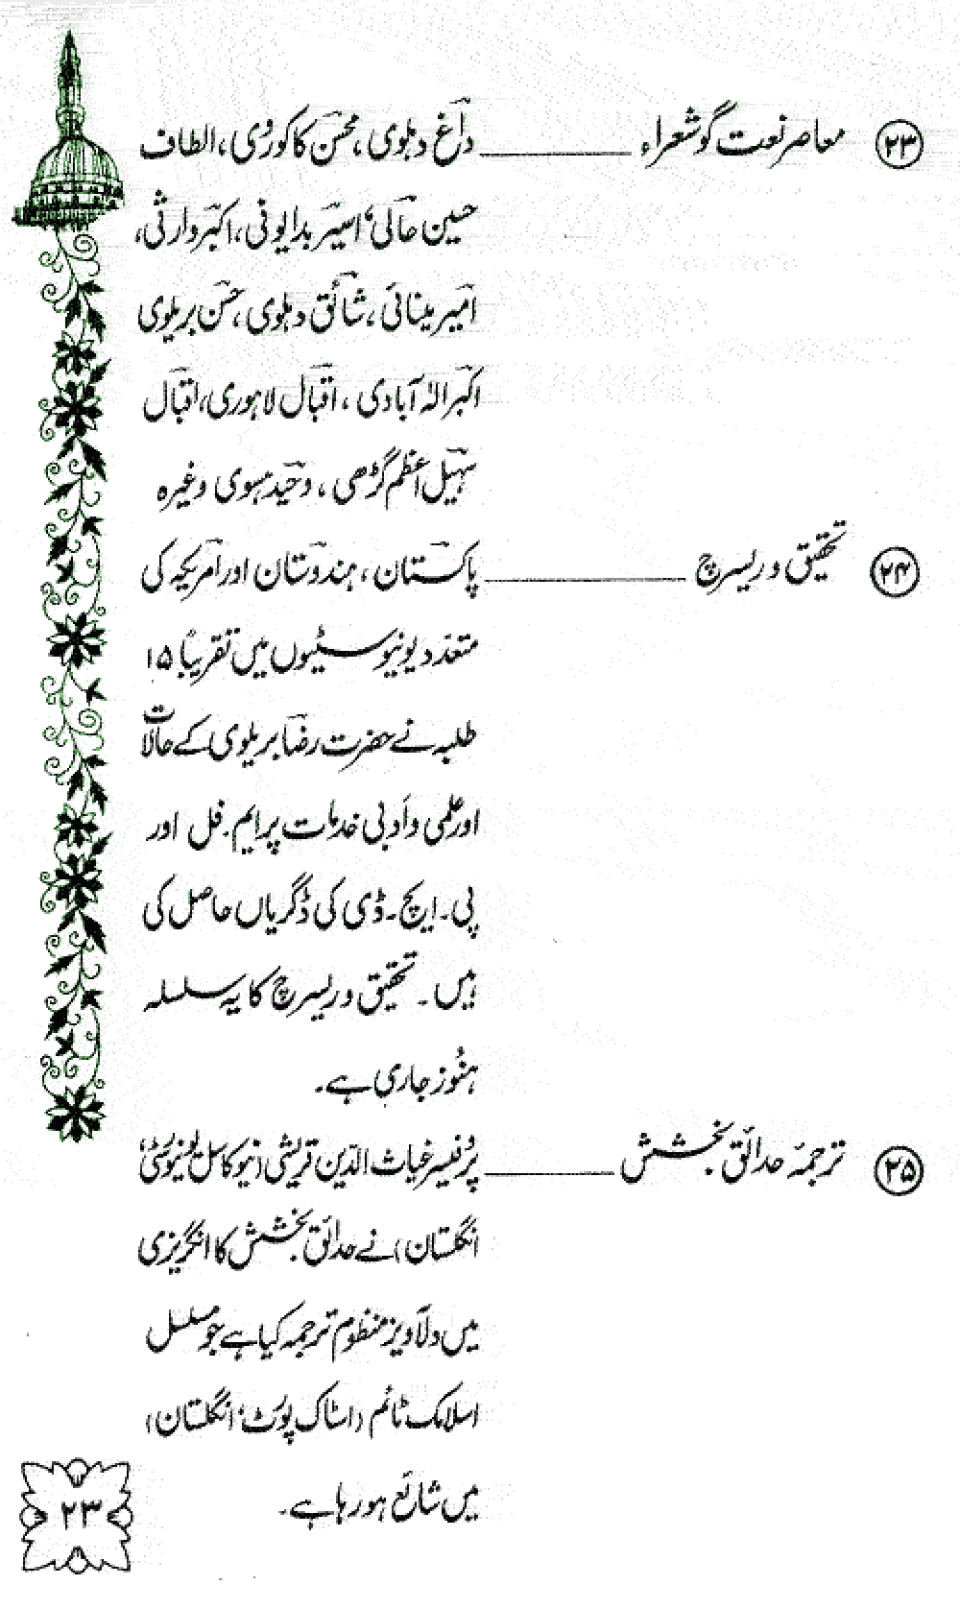 ۲۳ معاصر نعت گو شعراء ــــــــ داغ دہلوی، محسن کاکوروی، الطاف
حسین حالی، اسیر بدایونی، اکبر وارثی،
امیر مینائی، شائق دہلوی، حسن بریلوی
اکبر الہ آبادی، اقبال لاہوری، اقبال
سہیل اعظم گڑھی، وحید ہسوی وغیرہ
۲۴ تحقیق و ریسرچ ــــــــ پاکستان، ہندوستان اور امریکہ کی
متعدد یونیورسٹیوں میں تقریباً ۱۵
طلبہ نے حضرت رضا بریلوی کے حالات
اور علمی و ادبی خدمات پر ایم۔فل اور
پی۔ایچ۔ڈی کی ڈگریاں حاصل کی
ہیں۔ تحقیق و ریسرچ کا یہ سلسلہ
ہنوز جاری ہے۔
۲۵ ترجمہ حدائق بخشش ــــــــ پروفیسر غیاث الدین قریشی (نیو کاسل یونیورسٹی،
انگلستان) نے حدائق بخشش کا انگریزی
میں دلآویز منظوم ترجمہ کیا ہے جو مسلسل
اسلامک ٹائم (اسٹاک پورٹ، انگلستان)
میں شائع ہو رہا ہے۔
۲۳